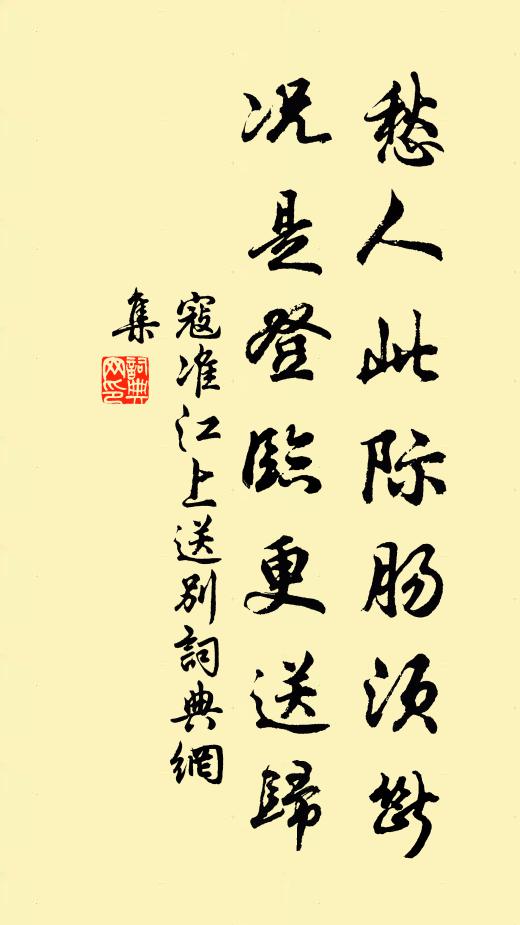 愁人此际肠须断
况是登臨更送歸
寇准江上送别詞典網
集
詞典网印